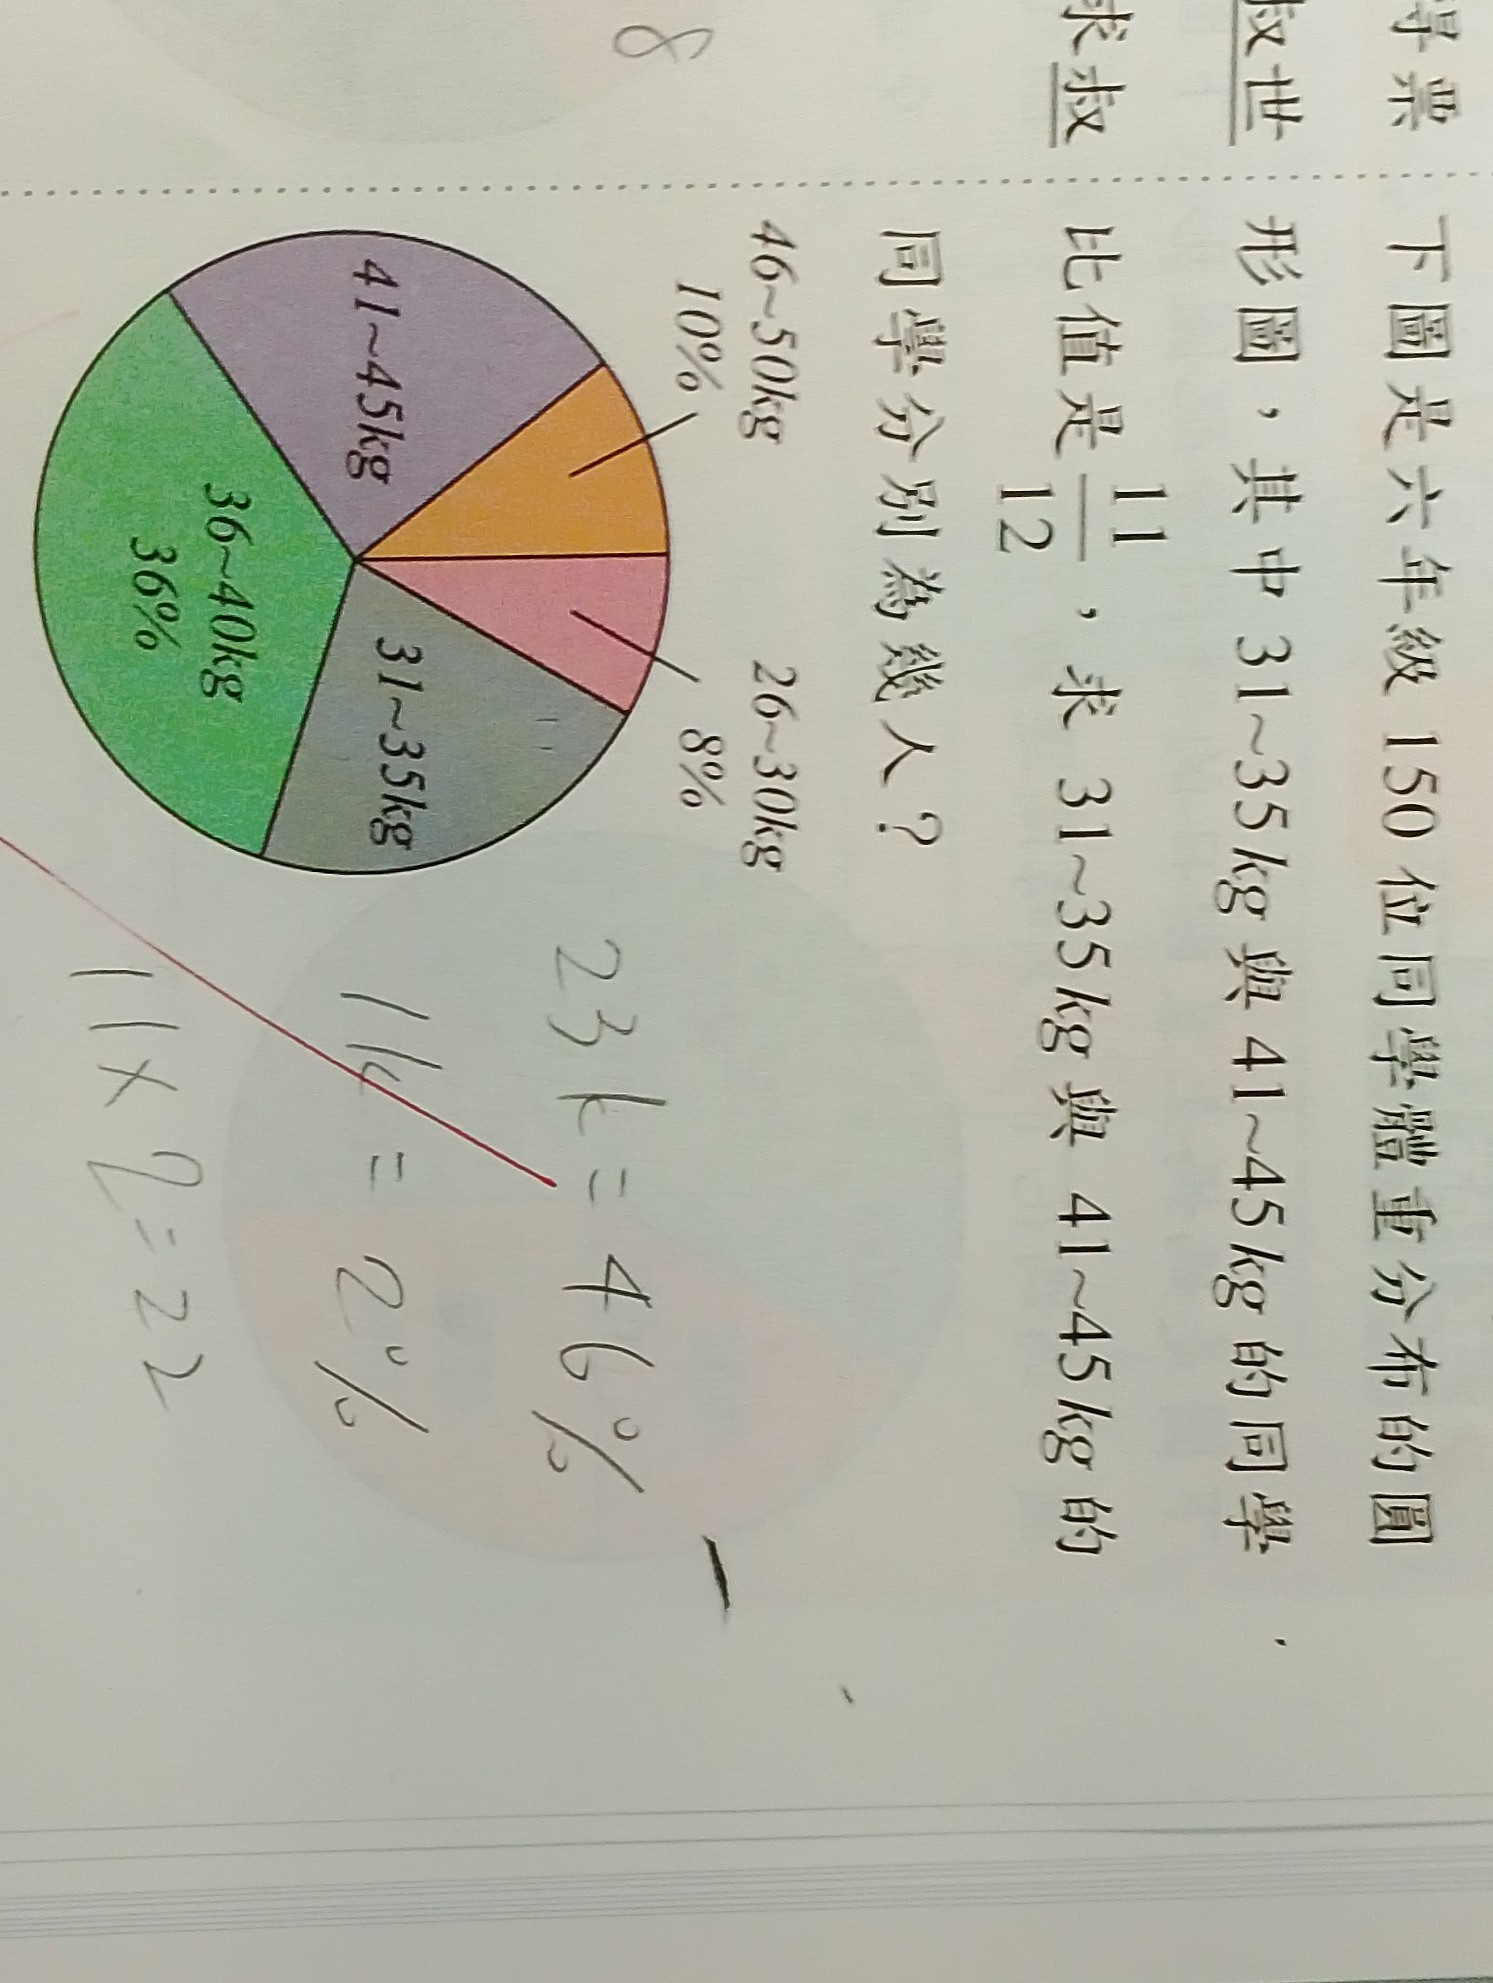 得票
叔世
求叔
8
下圖是六年級 150 位同學體重分布的圓
形圖，其中 31~35kg 與 41~45kg 的同學
比值是 11/12，求 31~35kg 與 41~45kg 的
同學分別為幾人？
46~50kg
10%
26~30kg
8%
41~45kg
31~35kg
36~40kg
36%
23k=46%
1k=2%
11×2=22